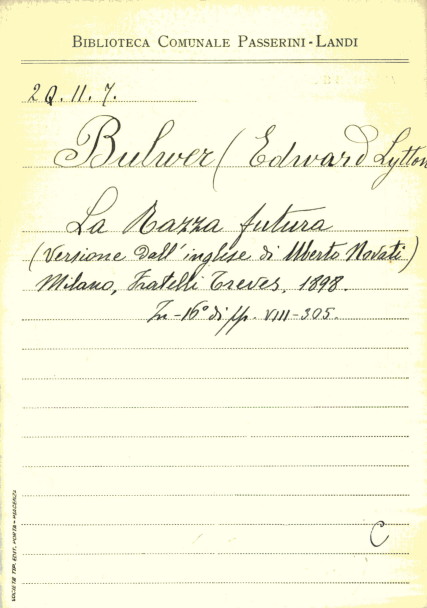 BIBLIOTECA COMUNALE PASSERINI-LANDI
2Q.11.7.
Bulwer (Edward Lytton
La Razza futura
(Versione dall'inglese di Uberto Novati)
Milano, Fratelli Treves, 1898.
In-16° di pp. VIII-305.
C